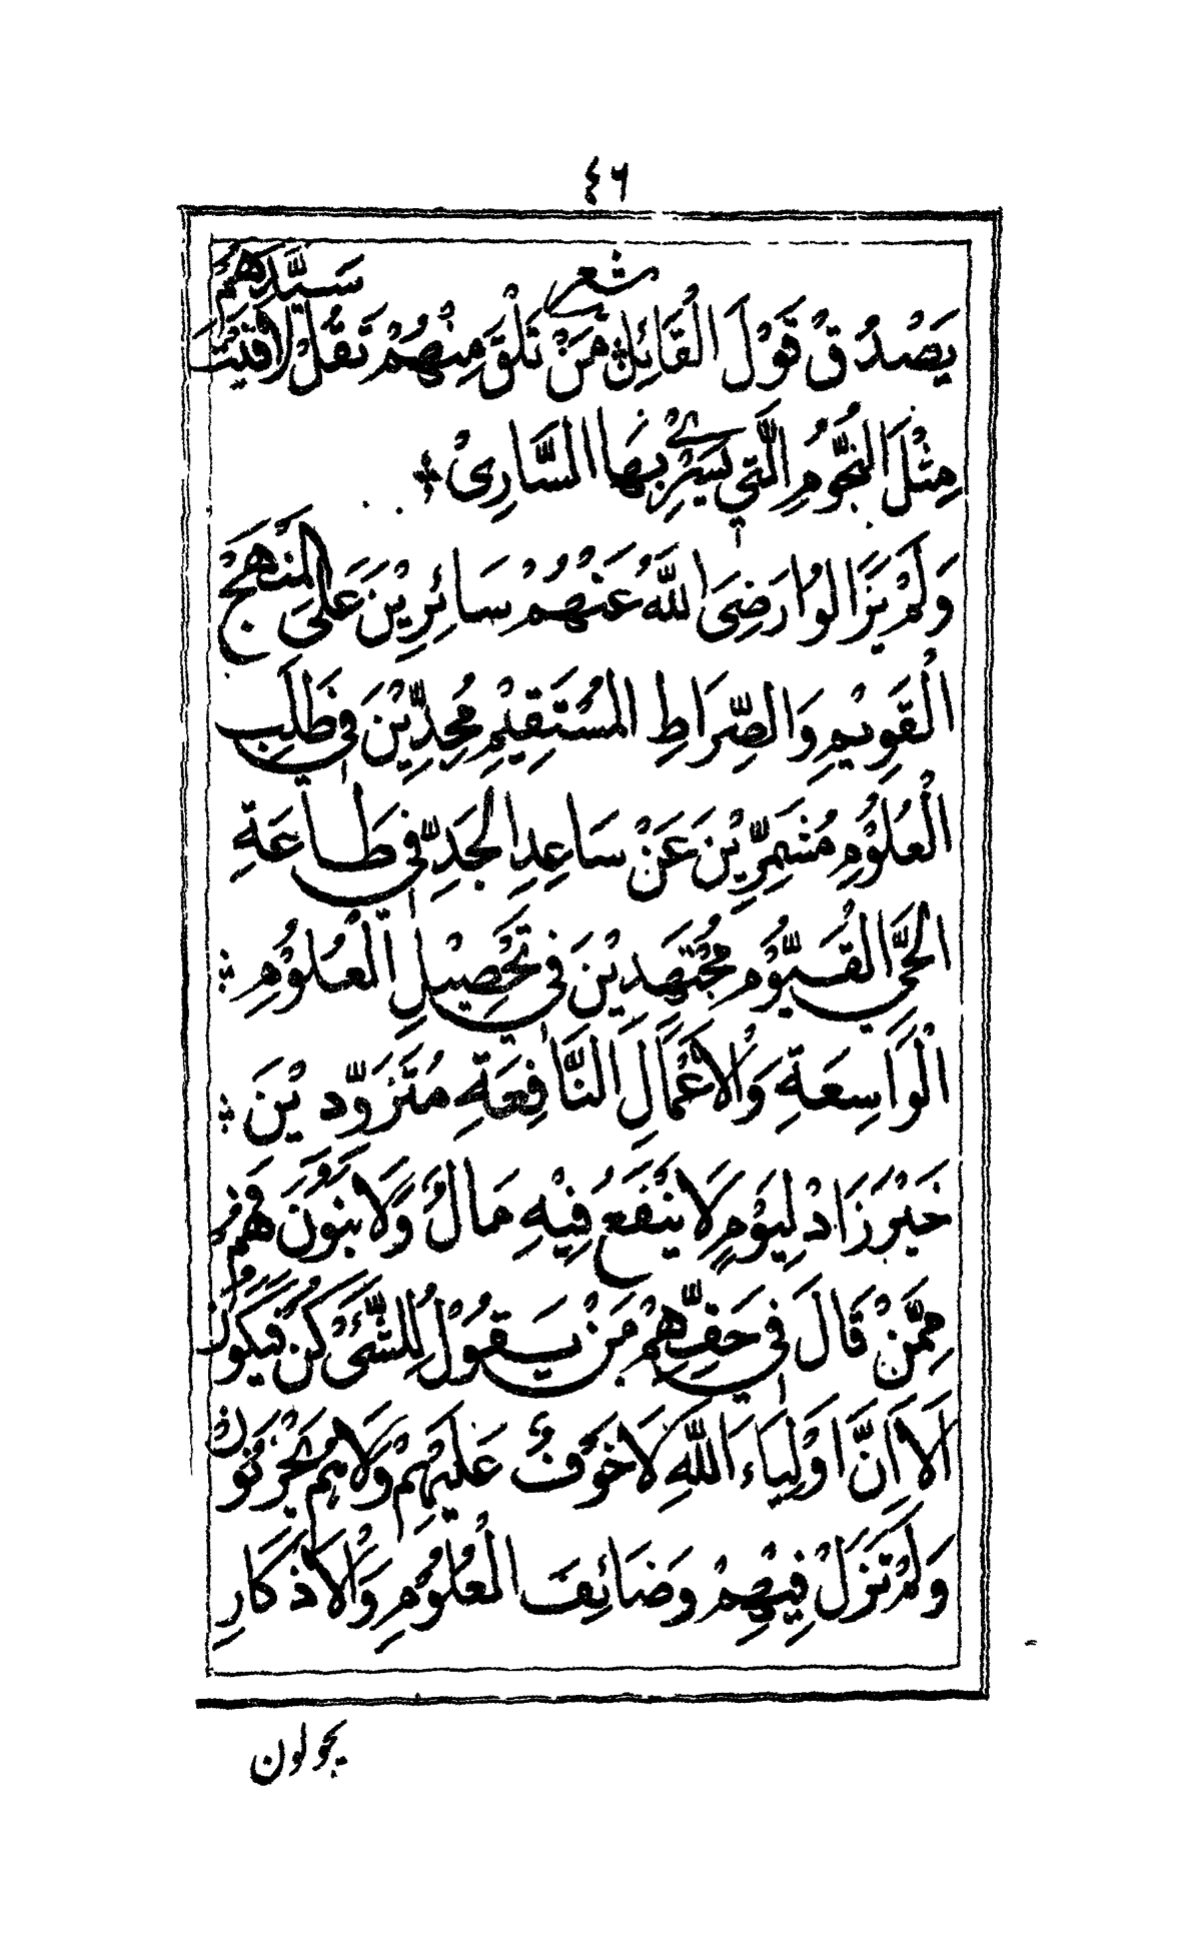 ٤٦
شعر
يَصْدُقْ قَوْلَ الْقَائِلِ مَنْ تَلْقَ مِنْهُمْ تَقُلْ لَاقَيْتُ سَيِّدَهُمْ
مِثْلَ النُّجُوْمِ الَّتِي يَسْرِيْ بِهَا السَّارِىْ
وَلَمْ يَزَالُوْا رَضِىَ اللهُ عَنْهُمْ سَائِرِيْنَ عَلَى الْمَنْهَجْ
الْقَوِيْمِ وَالصِّرَاطِ الْمُسْتَقِيْمِ مُجِدِّيْنَ فِي طَلَبِ
الْعُلُوْمِ مُشَمِرِّيْنَ عَنْ سَاعِدِ الْجَدِّ فِي طَاعَةِ
الْحَيِّ الْقَيُّوْمِ مُجْتَهِدِيْنَ فِي تَحْصِيْلِ الْعُلُوْمِ
الْوَاسِعَةِ وَالْاَعْمَالِ النَّافِعَةِ مُتَزَوِّدِيْنَ
خَيْرَ زَادْ لِيَوْمٍ لَا يَنْفَعُ فِيْهِ مَالٌ وَلَا بَنُوْنَ فَهُمْ
مِمَّنْ قَالَ فِي حَقِّهِمْ مَنْ يَقُوْلُ لِلشَّىْءِ كُنْ فَيَكُوْنُ
اَلَا اِنَّ اَوْلِيَاءَ اللهِ لَا خَوْفٌ عَلَيْهِمْ وَلَا هُمْ يَحْزَنُوْنَ
وَلَمْ تَزَلْ فِيْهِمْ وَضَائِفَ الْعُلُوْمِ وَالْاَذْكَارِ
يحولون